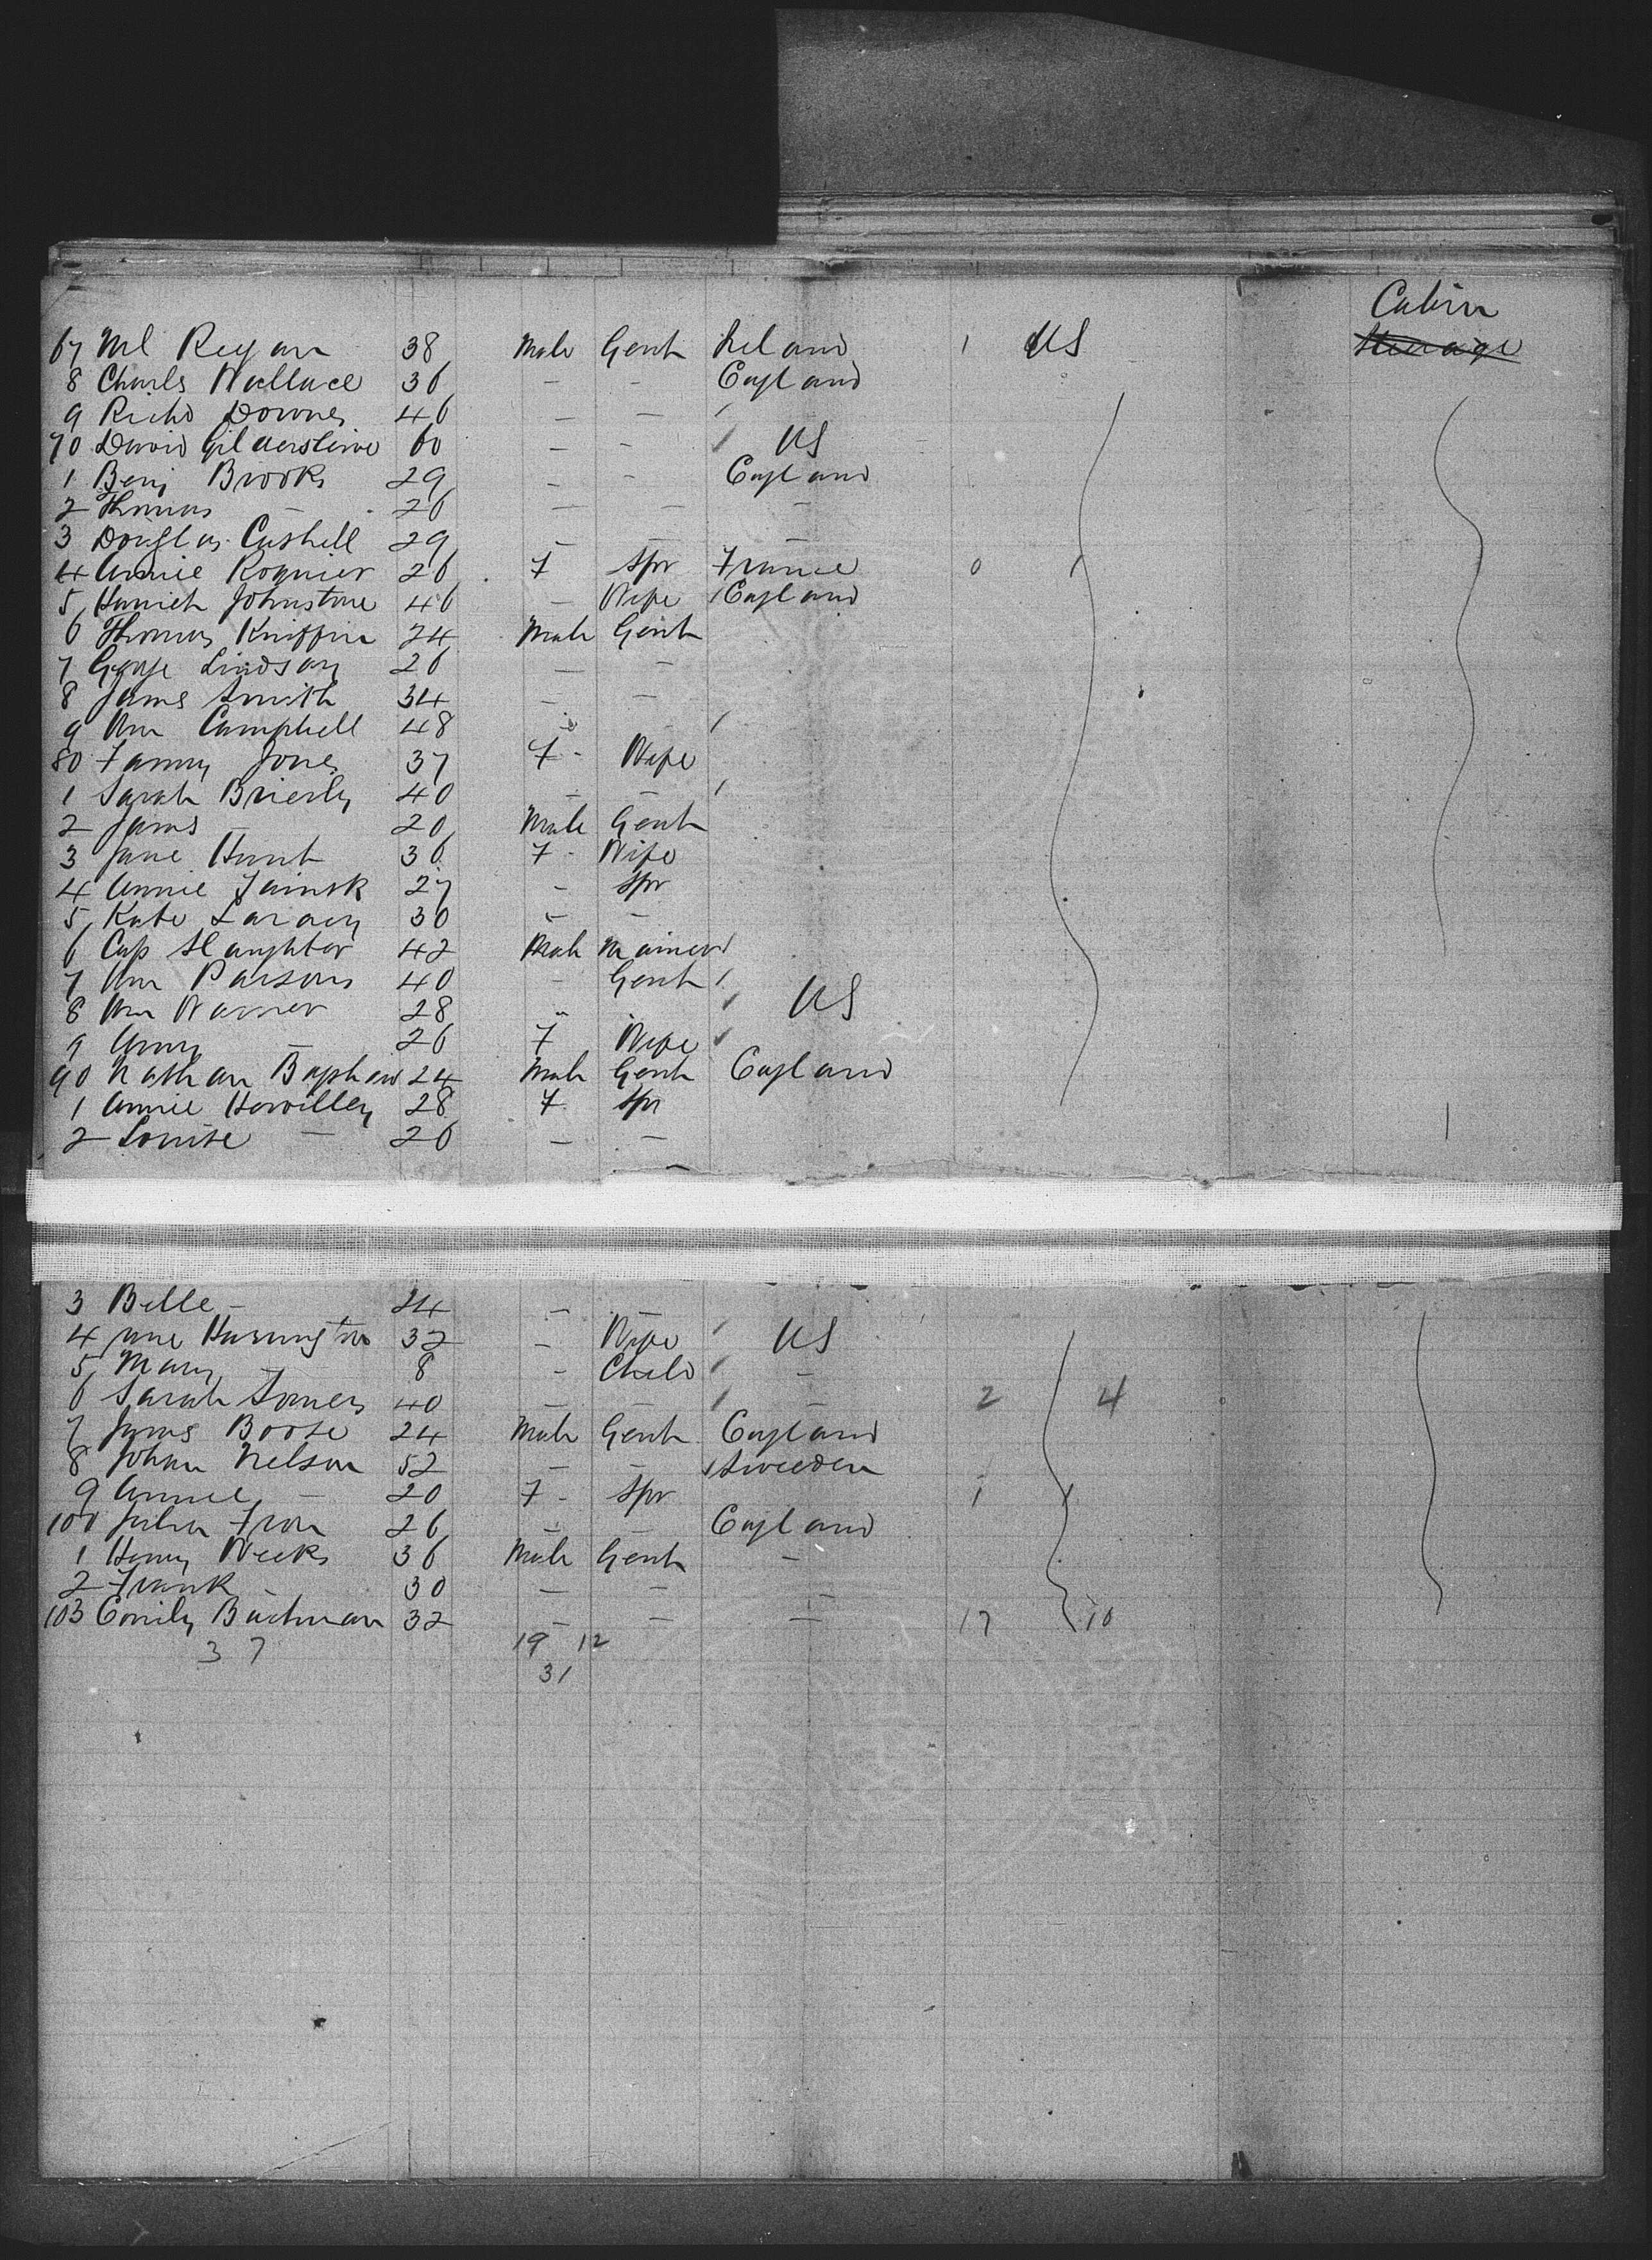 Cabin
67 Ml Regan 38 Male Gent Ireland 1 US Steerage
8 Charls Wallace 36 — - England
9 Richd Downes 46 — — /
70 David Gildersleive 60 — - / US
1 Benj Brooks 29 - - England
2 Thomas — 26 — — —
3 Douglas Cashell 29 — — —
4 Annie Rognier 26 F Spr France 0 /
5 Harriet Johnstone 46 — Wife England
6 Thomas Kniffin 24 Male Gent
7 George Lindsay 26 — -
8 Jams Smith 34 — —
9 Wm Campbell 48 - - /
80 Fanny Jones 37 F - Wife
1 Sarah Brierly 40 — — /
2 Jams — 20 Male Gent
3 Jane Hunt 36 F - Wife
4 Annie 27 - Spr
5 Kate 30 - -
6 Cap Slaughter 42 Male Mariner /
7 Wm Parsons 40 - Gent /
8 Wm Warner 28 " / US
9 Amy — 26 F Wife /
90 Nathan 24 Male Gent England
1 Annie 28 F Spr
2 Louise — 20 — —
3 Belle - 24 — —
4 Jane Harrington 32 - Wife / US
5 Mary 8 - Child / -
6 Sarah Somers 40 — — / — 2 4
7 Jams Boose 24 Male Gent England
8 Johan Nelson 52 — — Sweeden
9 Annie — 20 F - Spr 1 /
100 Julia 26 — — England
1 Henry Weeks 36 Male Gent -
2 Frank 30 — — —
103 Emily Bachman 32 — — — 17 10
37 19 12
31